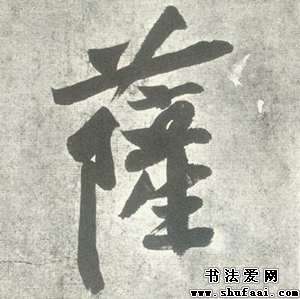 薩
书法爱网
www.shufaai.com